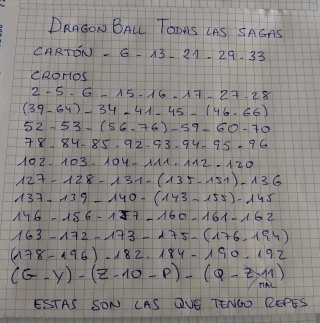 DRAGON BALL TODAS LAS SAGAS
CARTÓN - 6 - 13 - 21 - 29 - 33
CROMOS
2 - 5 - 6 - 15 - 16 - 17 - 27 - 28
(39-64) - 34 - 41 - 45 - (46-66)
52 - 53 - (56-76) - 59 - 60 - 70
78 - 84 - 85 - 92 - 93 - 94 - 95 - 96
102 - 103 - 104 - 111 - 112 - 120
127 - 128 - 131 - (135-151) - 136
137 - 139 - 140 - (143-155) - 145
146 - 156 - 157 - 160 - 161 - 162
163 - 172 - 173 - 175 - (176-194)
(178-196) - 182 - 184 - 190 - 192
(G-Y) - (Z-10-P) - (Q-Z-11)
MAL
ESTAS SON LAS QUE TENGO REPES